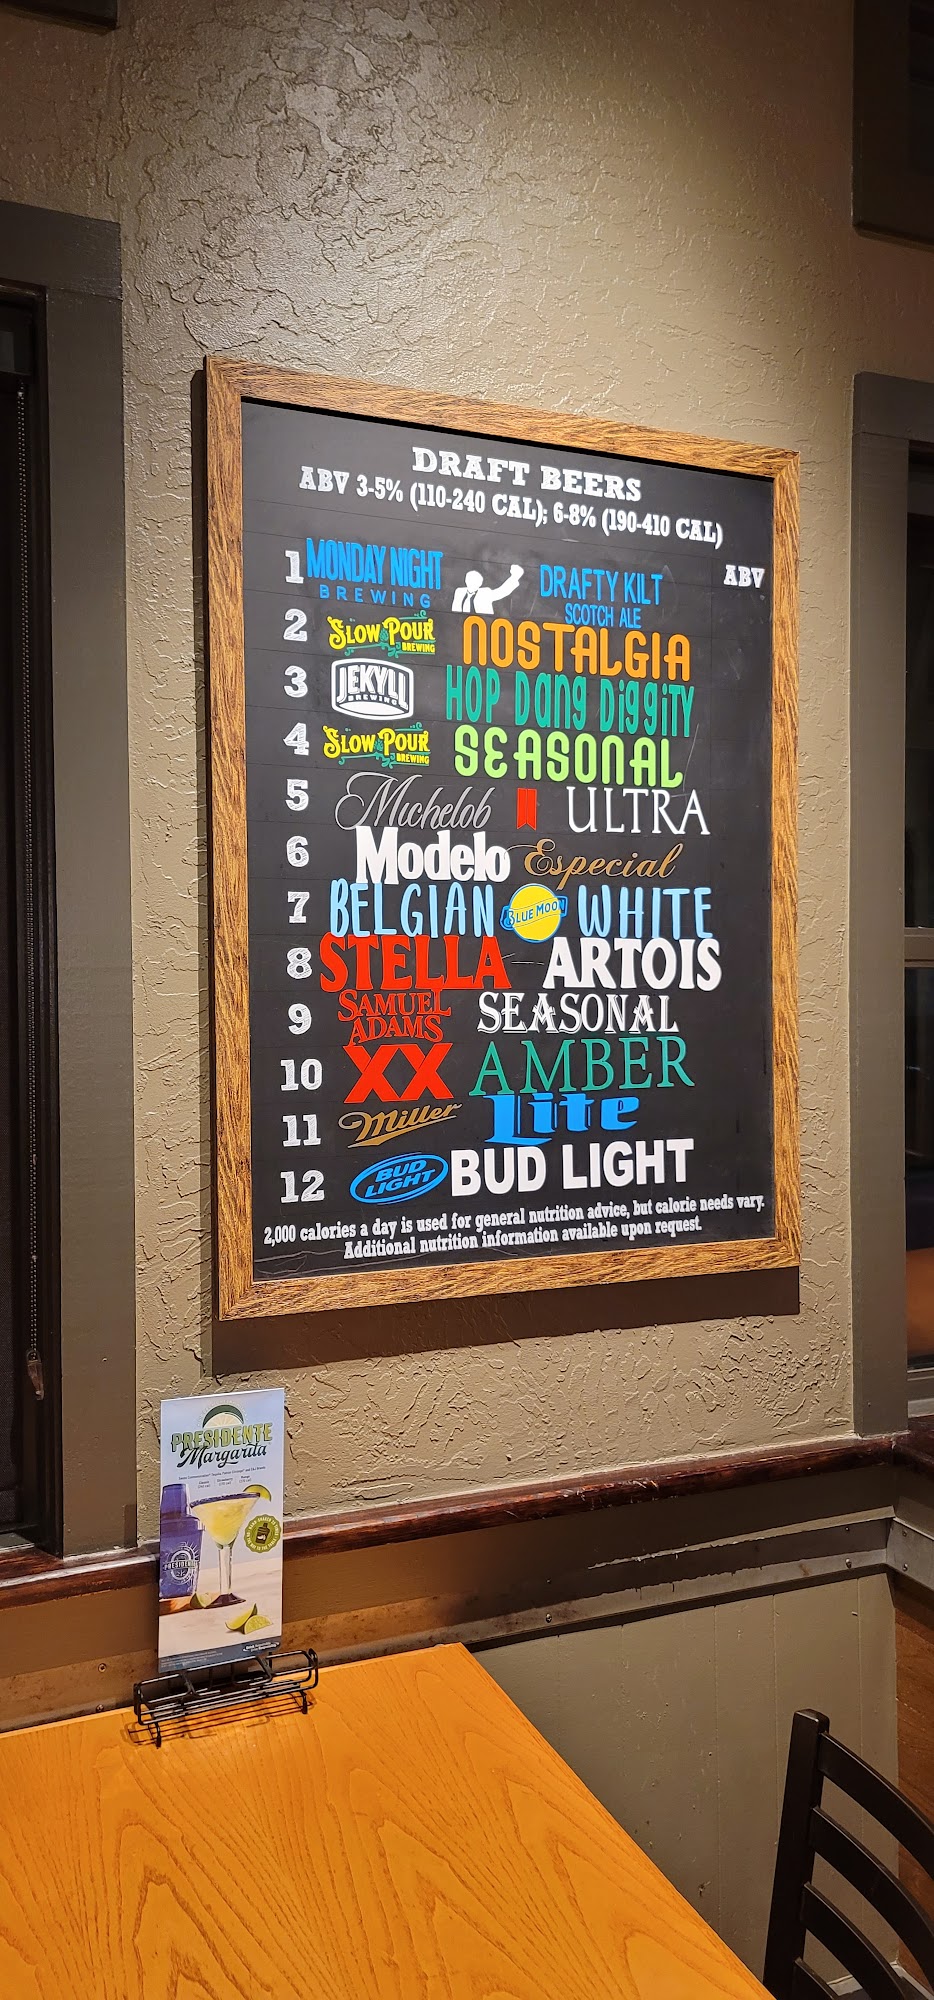 DRAFT BEERS
ABV 3-5% (110-240 CAL); 6-8% (190-410 CAL)
ABV
1 MONDAY NIGHT BREWING DRAFTY KILT SCOTCH ALE
2 SLOW POUR BREWING NOSTALGIA
3 JEKYLL BREWING HOP DANG DIGGITY
4 SLOW POUR BREWING SEASONAL
5 Michelob ULTRA
6 Modelo Especial
7 BELGIAN BLUE MOON WHITE
8 STELLA ARTOIS
9 SAMUEL ADAMS SEASONAL
10 XX AMBER
11 Miller Lite
12 BUD LIGHT BUD LIGHT
2,000 calories a day is used for general nutrition advice, but calorie needs vary.
Additional nutrition information available upon request.
PRESIDENTE
Margarita
PRESIDENTE